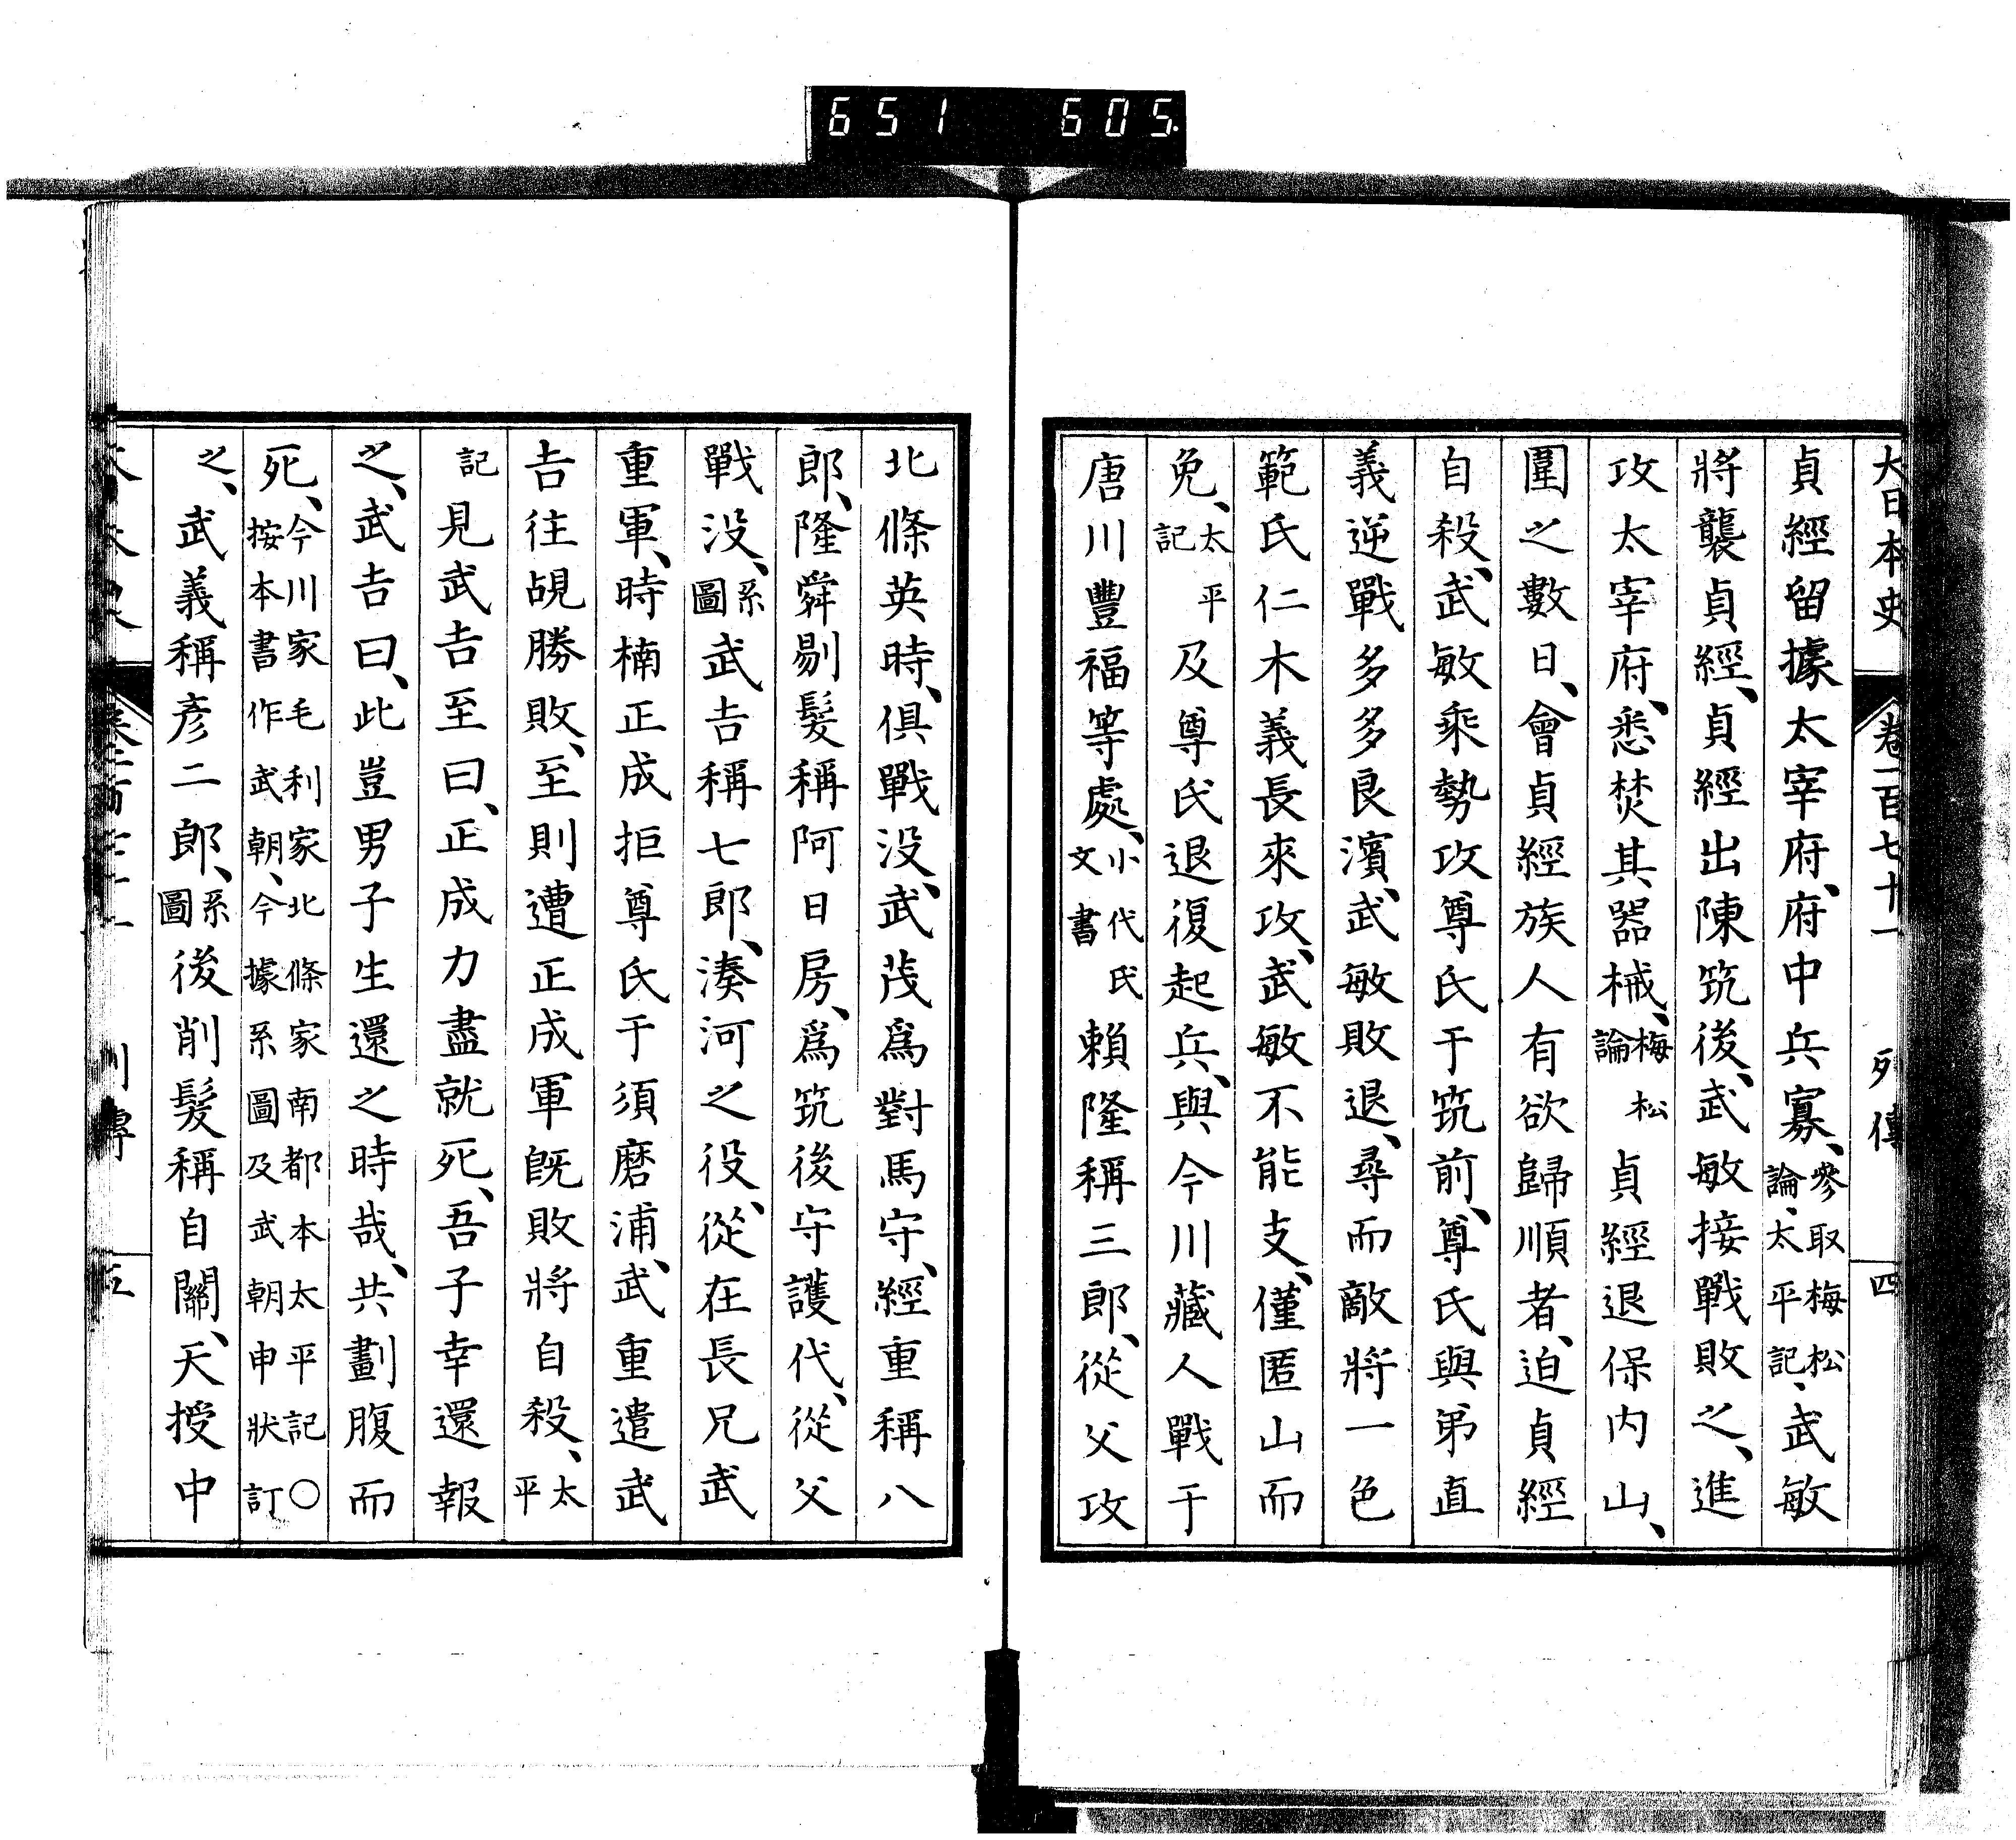 651 605.
大日本史 卷一百七十一 列傳 四
貞經留據太宰府、府中兵寡、參取梅松論、太平記、武敏
將襲貞經、貞經出陳筑後、武敏接戰敗之、進
攻太宰府、悉焚其器械、梅松論貞經退保内山、
圍之數日、會貞經族人有欲歸順者、迫貞經
自殺、武敏乘勢攻尊氏于筑前、尊氏與弟直
義逆戰多多良濱、武敏敗退、尋而敵將一色
範氏仁木義長來攻、武敏不能支、僅匿山而
免、太平記及尊氏退復起兵、與今川藏人戰于
唐川豐福等處、小代氏文書賴隆稱三郎、從父攻
北條英時、俱戰没、武茂爲對馬守、經重稱八
郎、隆舜剔髮稱阿日房、爲筑後守護代、從父
戰没、系圖武吉稱七郎、湊河之役、從在長兄武
重軍、時楠正成拒尊氏于須磨浦、武重遣武
吉往覘勝敗、至則遭正成軍既敗將自殺、太平
記見武吉至曰、正成力盡就死、吾子幸還報
之、武吉曰、此豈男子生還之時哉、共劃腹而
死、今川家毛利家北條家南都本太平記○按本書作武朝、今據系圖及武朝申狀訂
之、武義稱彥二郎、系圖後削髮稱自關、天授中
列傳 五